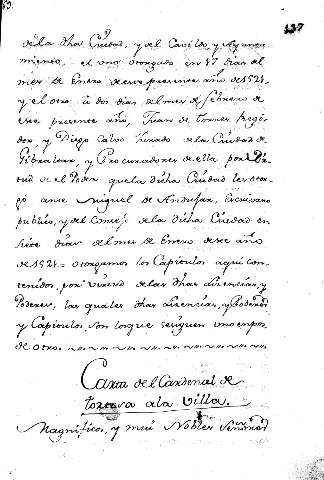 137
de la dha Ciudad, y del Cavildo, y Ayunta
miento, el uno otorgado en 17 dias del
mes de Enero de este presente año de 1521,
y el otro à dos dias del mes de febrero de
este presente año, Juan de Torres Regi
dor, y Diego Calvo Jurado de la Ciudad de
Gibraltar, y Procuradores de ella por Vir
tud de el Poder que la dicha Ciudad les otor
gó ante Miguel de Andujar, Escrivano
publico, y del Consejo de la dicha Ciudad en
siete dias del mes de Enero de este año
de 1521 = otorgamos los Capitulos aqui con
tenidos, por virtud de las dhas Licencias, y
Poderes, las quales dhas Licencias, y Poderes
y Capitulos son los que se siguen uno enpos
de otro.
Carta del Cardenal de
tortosa a la Villa.
Magnificos, y mui Nobles Señores